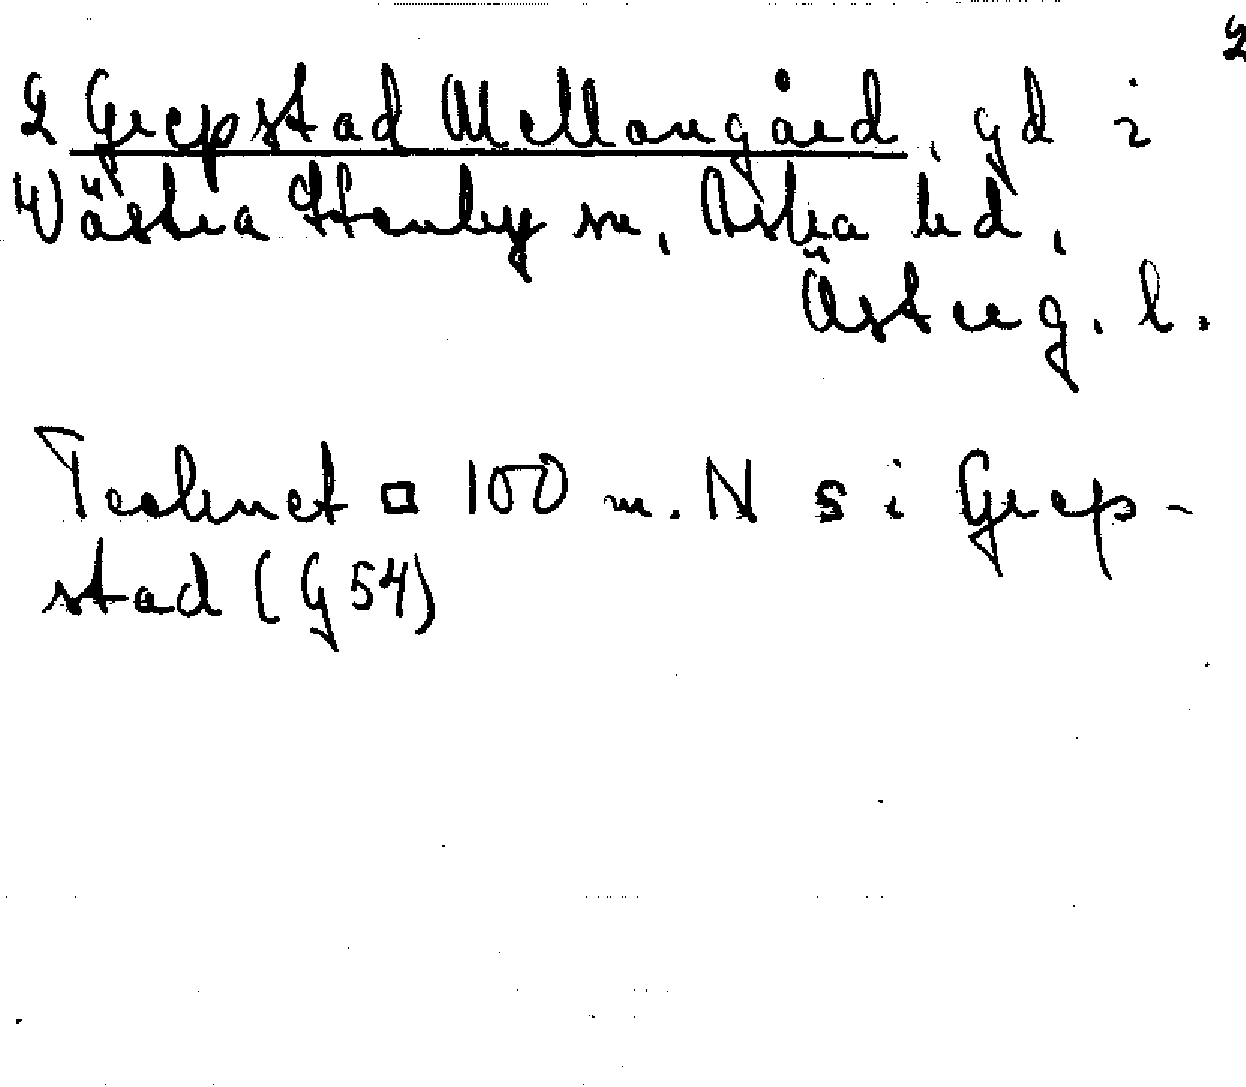 2
2 Grepstad Mellangård, gd i
Västra Stenby sn, Aska hd,
Österg. l.
Tecknet □ 100 m. N s i Grep-
stad (G 54)